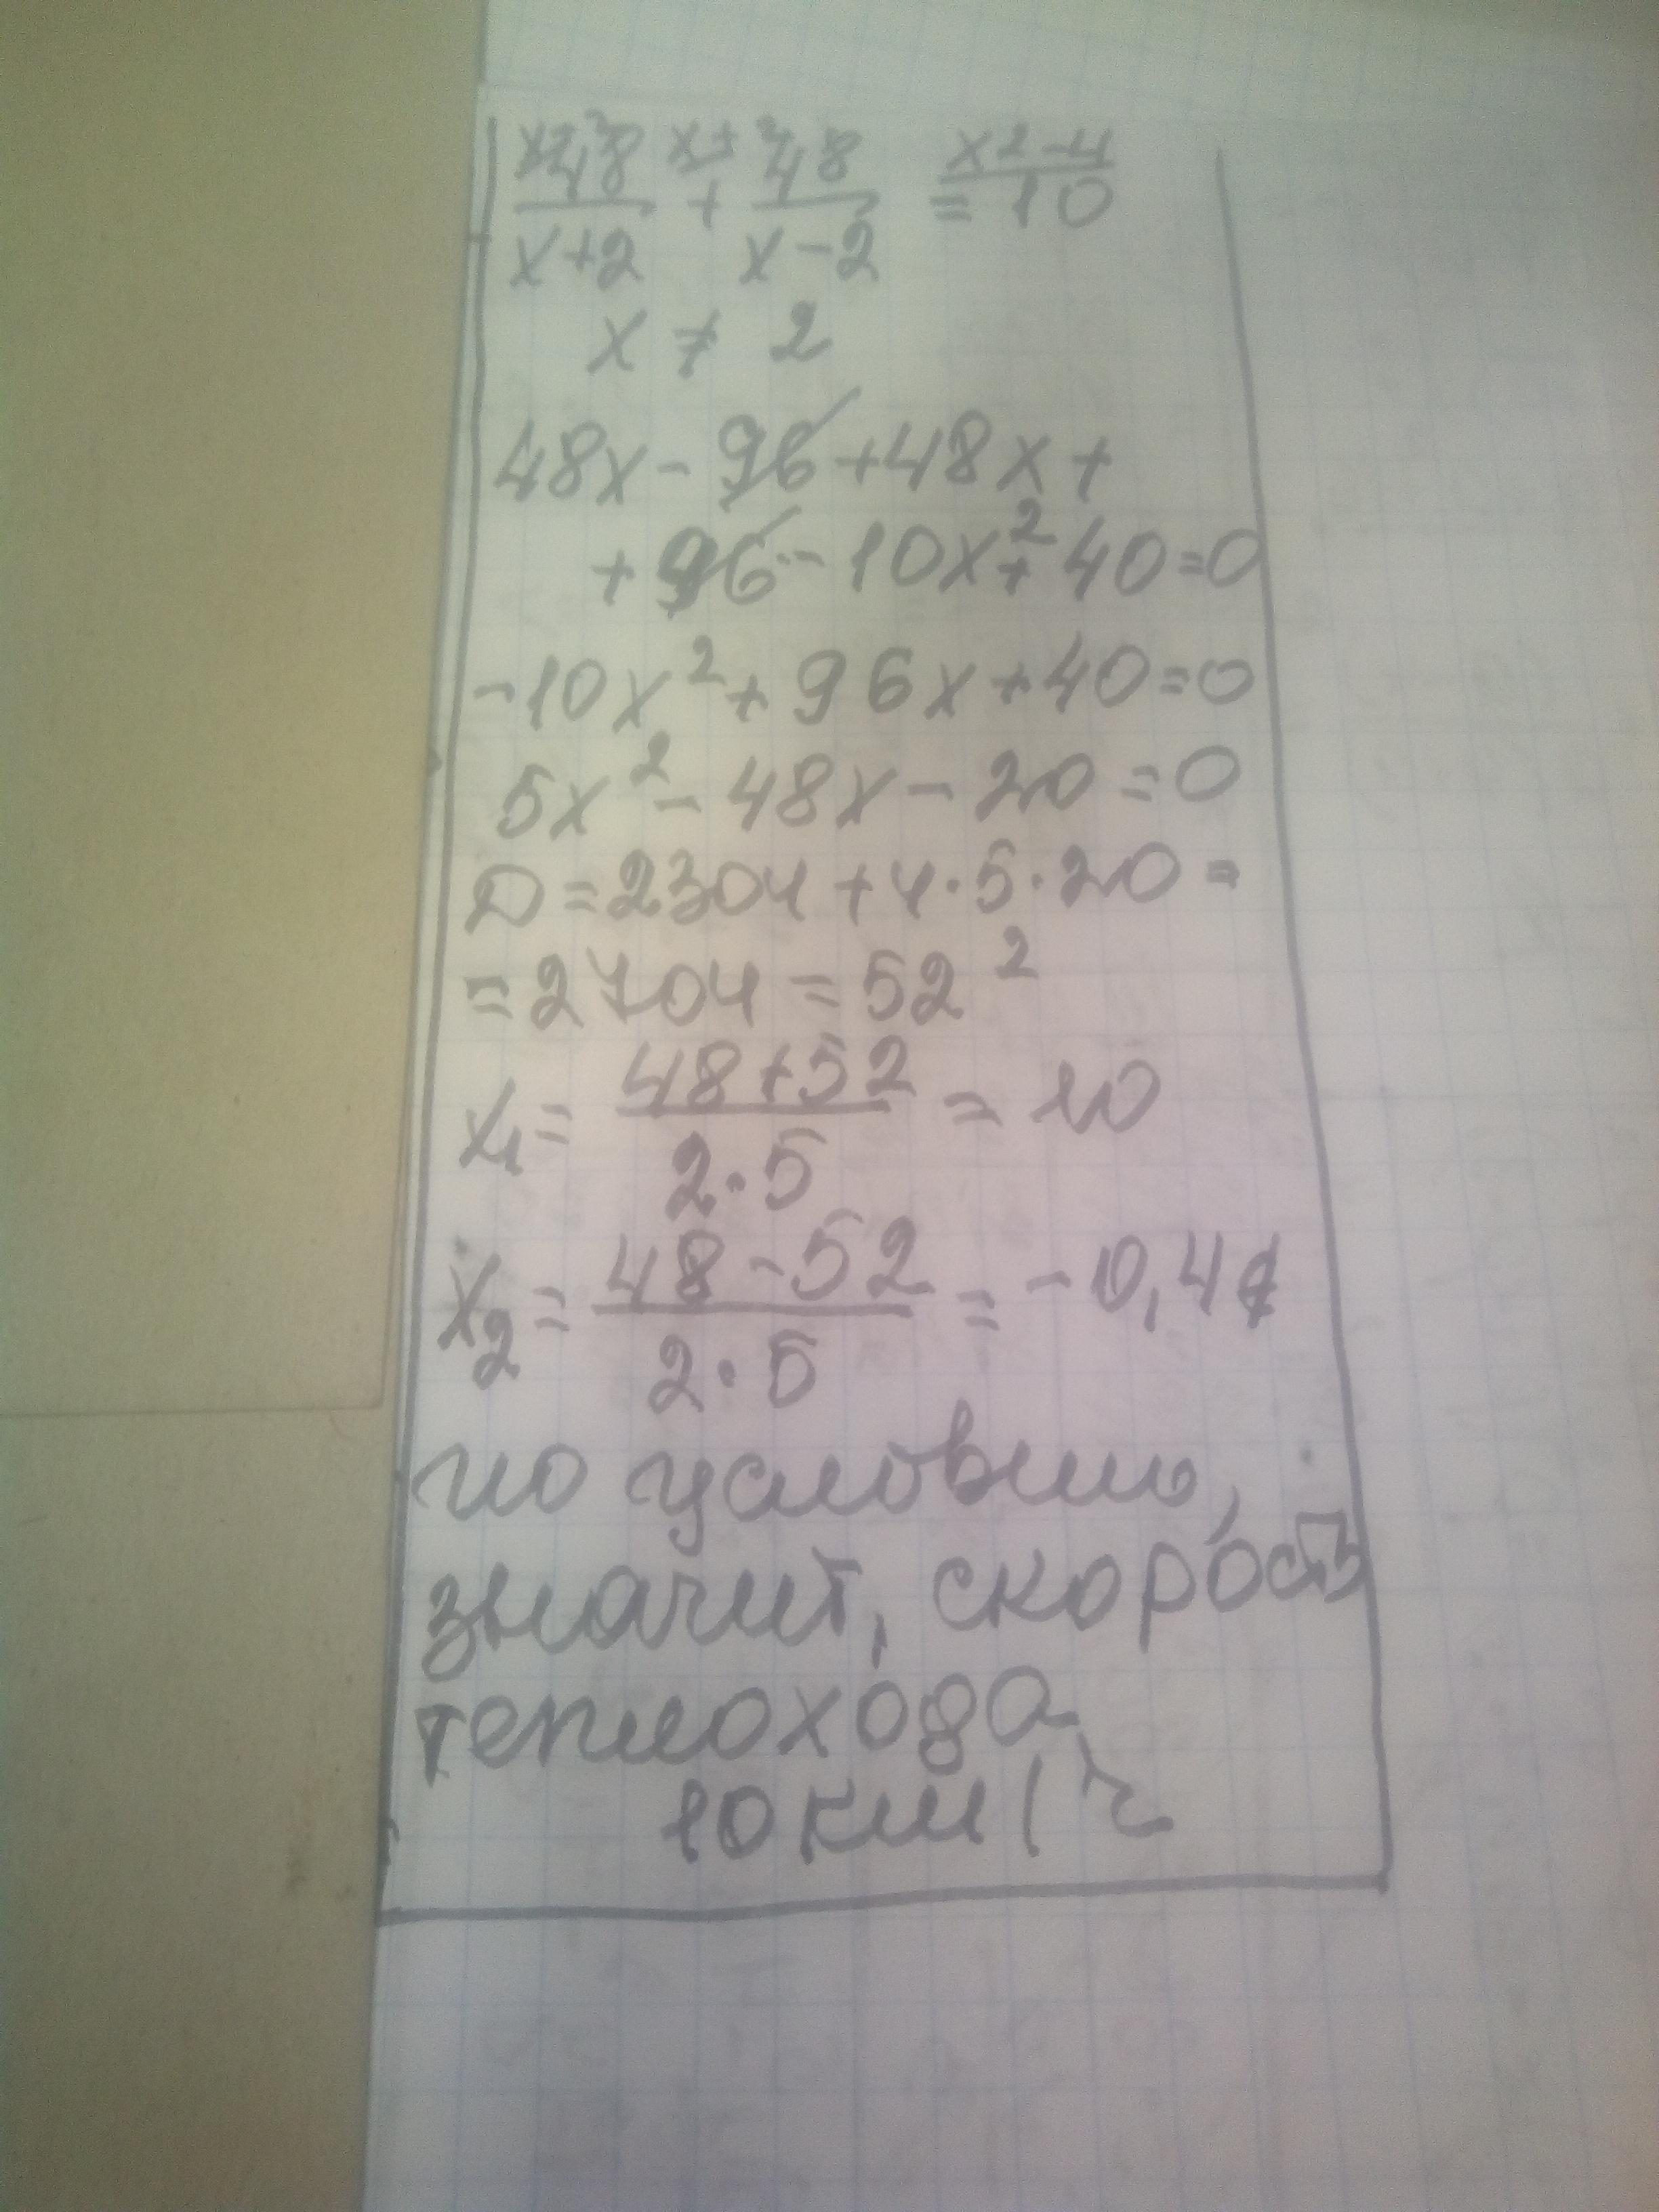 x-2 x+2 x²-4
48/(x+2) + 48/(x-2) = 10
x ≠ 2
48x - 96 + 48x +
+ 96 - 10x² + 40 = 0
-10x² + 96x + 40 = 0
5x² - 48x - 20 = 0
D = 2304 + 4·5·20 =
= 2704 = 52²
x₁ = (48+52)/(2·5) = 10
x₂ = (48-52)/(2·5) = -0,4 ¢
по условию,
значит, скорость
теплохода
10 км/ч